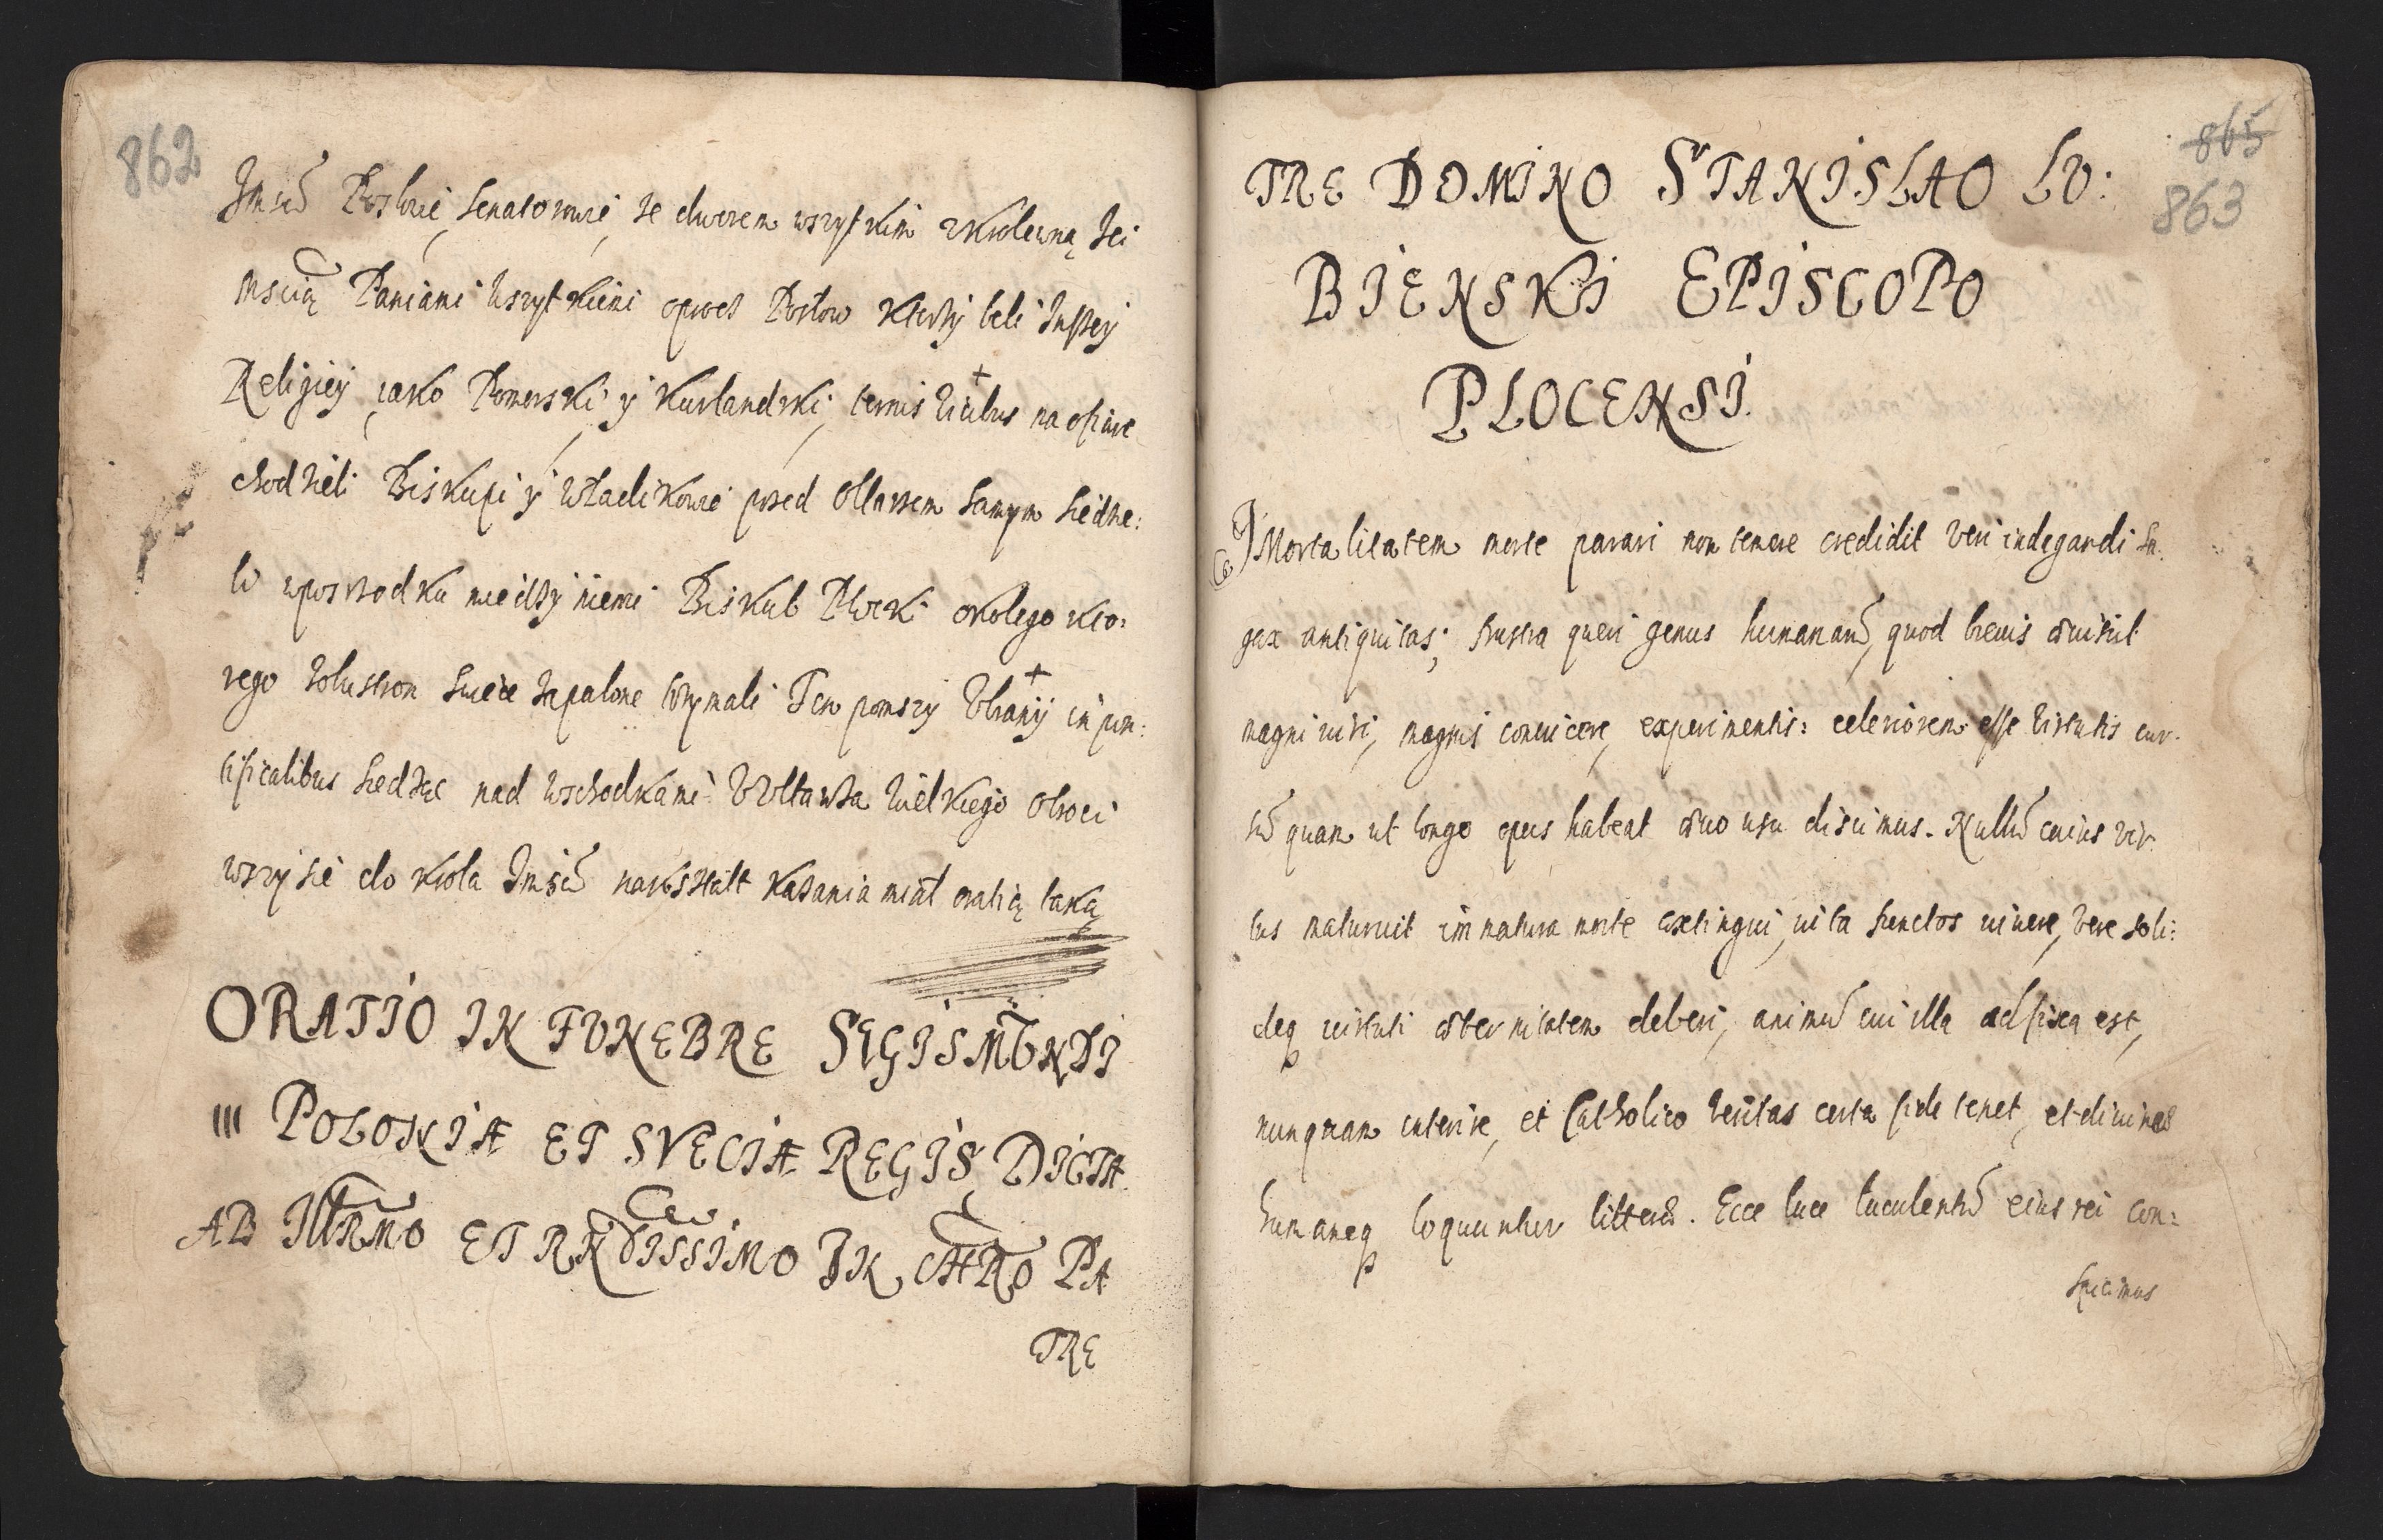 862
Jmsću Posłowie, senatorowie, ze dworem wszytkim zkrolewną Jei
Mscią Paniami wszytkiemi oprocz Posłow ktorzy beli Inszey
Religiey, iako Pomerski, y Kurlandzki, ternis vicibus na ofiare
chodzieli Biskupi y Władikowie przed Ołtarzem samym siedze:
li wposrzodku miedzy niemi Biskub Płocki okolego kto:
rego zobustron swiece zapalone trzymali Ten pomszy Vbrany in pon:
tificalibus siedząc nad wschodkami V Ołtarza wielkiego obroci
wszy sie do krola Jmści naksztalt kazania miał oratią taką
ORATIO IN FVNEBRE SIGISMVNDI
III POLONIÆ ET SVECIÆ REGIS DICTA
AB IllRMO ET RNDISSIMO IN CHRO PA
TRE
865
863
TRE DOMINO STANISLAO LV:
BIENSKI EPISCOPO
PLOCENSI.
IMortalitatem morte parari non temere credidit veri indagandi sa:
gax antiquitas; frustra queri genus humanum, quod breuis æui sit
magni uiri, magnis conuicere, experimentis: celeriorem esse virtutis cur:
sū quam ut longo opus habeat æuo usu discimus. Nullū cuius vir:
tus maturuit immatura morte extingui, uita functos uiuere, vere soli:
deq uirtuti æternitatem deberi, animū cui illa adfixa est,
nunquam interire, et Catholico veritas certa fide tenet, et diuinæ
humaneq loquuntur litteræ. Ecce luce luculentū eius rei con:
spicimus